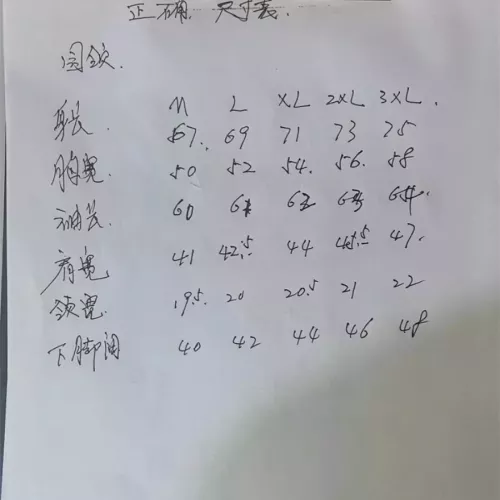 正确 尺寸表.
圆领.
M L XL 2XL 3XL.
身长. 67. 69 71 73 75
胸宽. 50 52 54. 56. 58
袖长 60 61 62 63 64
肩宽 41 42.5 44 45.5 47.
领宽. 19.5. 20 20.5 21 22
下脚阔 40 42 44 46 48